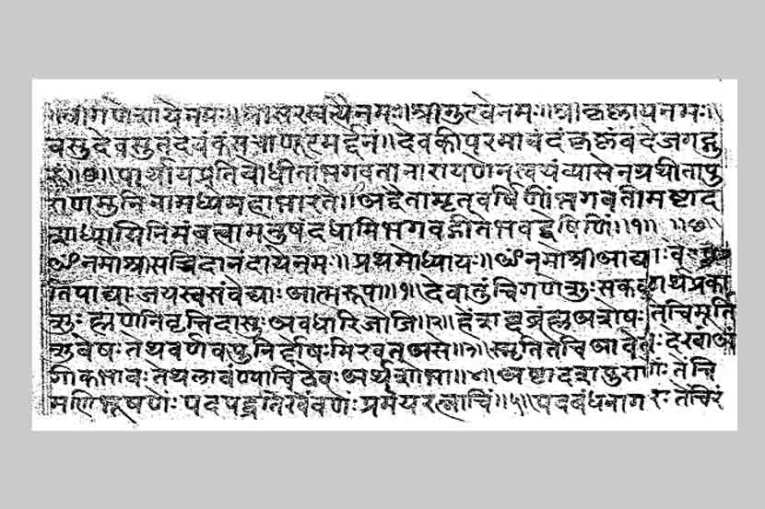 श्रीगणेशायेनमः॥ श्रीसरस्वत्यैनमः॥ श्रीगुरवेनमः॥ श्रीकृष्णायनमः॥
वसुदेवसुतंदेवंकंसचाणूरमर्द्दनं॥ देवकीपरमानंदंकृष्णंवंदेजगद्गु
रुं॥७॥ पार्थायप्रतिबोधीतांभगवतानारायणेनस्वयंव्यासेनग्रथीतापु
राणमुनिनामध्येमहाभारते॥ अद्वैतामृतवर्षिणींभगवतीमष्टाद
शाध्यायिनिमंबत्वामनुषंदधामिभगवद्गीतेभवद्वेषिणिं॥१॥
ॐनमोश्रीसच्चिदानंदायेनमः॥ प्रथमोध्यायः॥ ॐनमोश्रीआद्या: वेदप्र
तिपाद्या: जयस्वसंवेद्या: आत्मरूपा॥१॥ देवातुंचिगणेशु: सकळार्थप्रका
शु: ह्मणेनिवृत्तिदासु: अवधारिजोजि॥२॥ हेशब्दब्रंह्मअशेष: तेचिमूर्ति
सुवेष: तेथवर्णवपुनिर्दोष: मिरवतअसे॥३॥ स्मृतितेचिआवेव: देखाआं
गीकभाव: तेथलावंण्याचिठेव: अर्थशोभा॥४॥ अष्टादशपुराणें: तेचि
मणिभूषणे: पदपद्धतिखेवणे: प्रमेयरत्नाचिं॥५॥ पदबंधनागर: तेचिरं